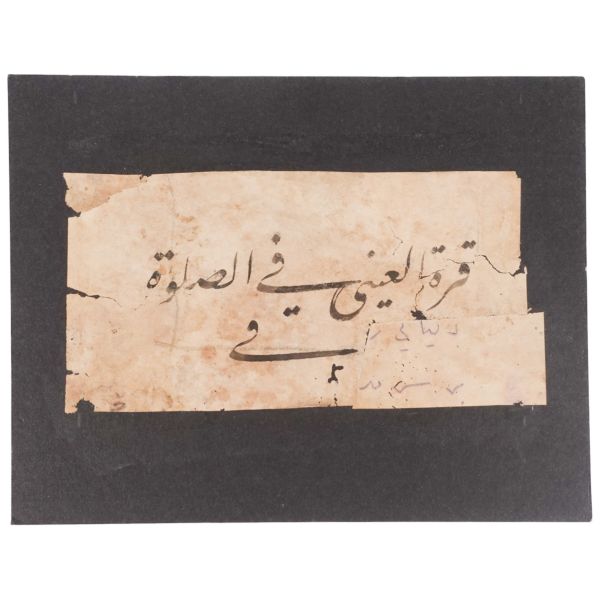 قرة العيني في الصلوة
في